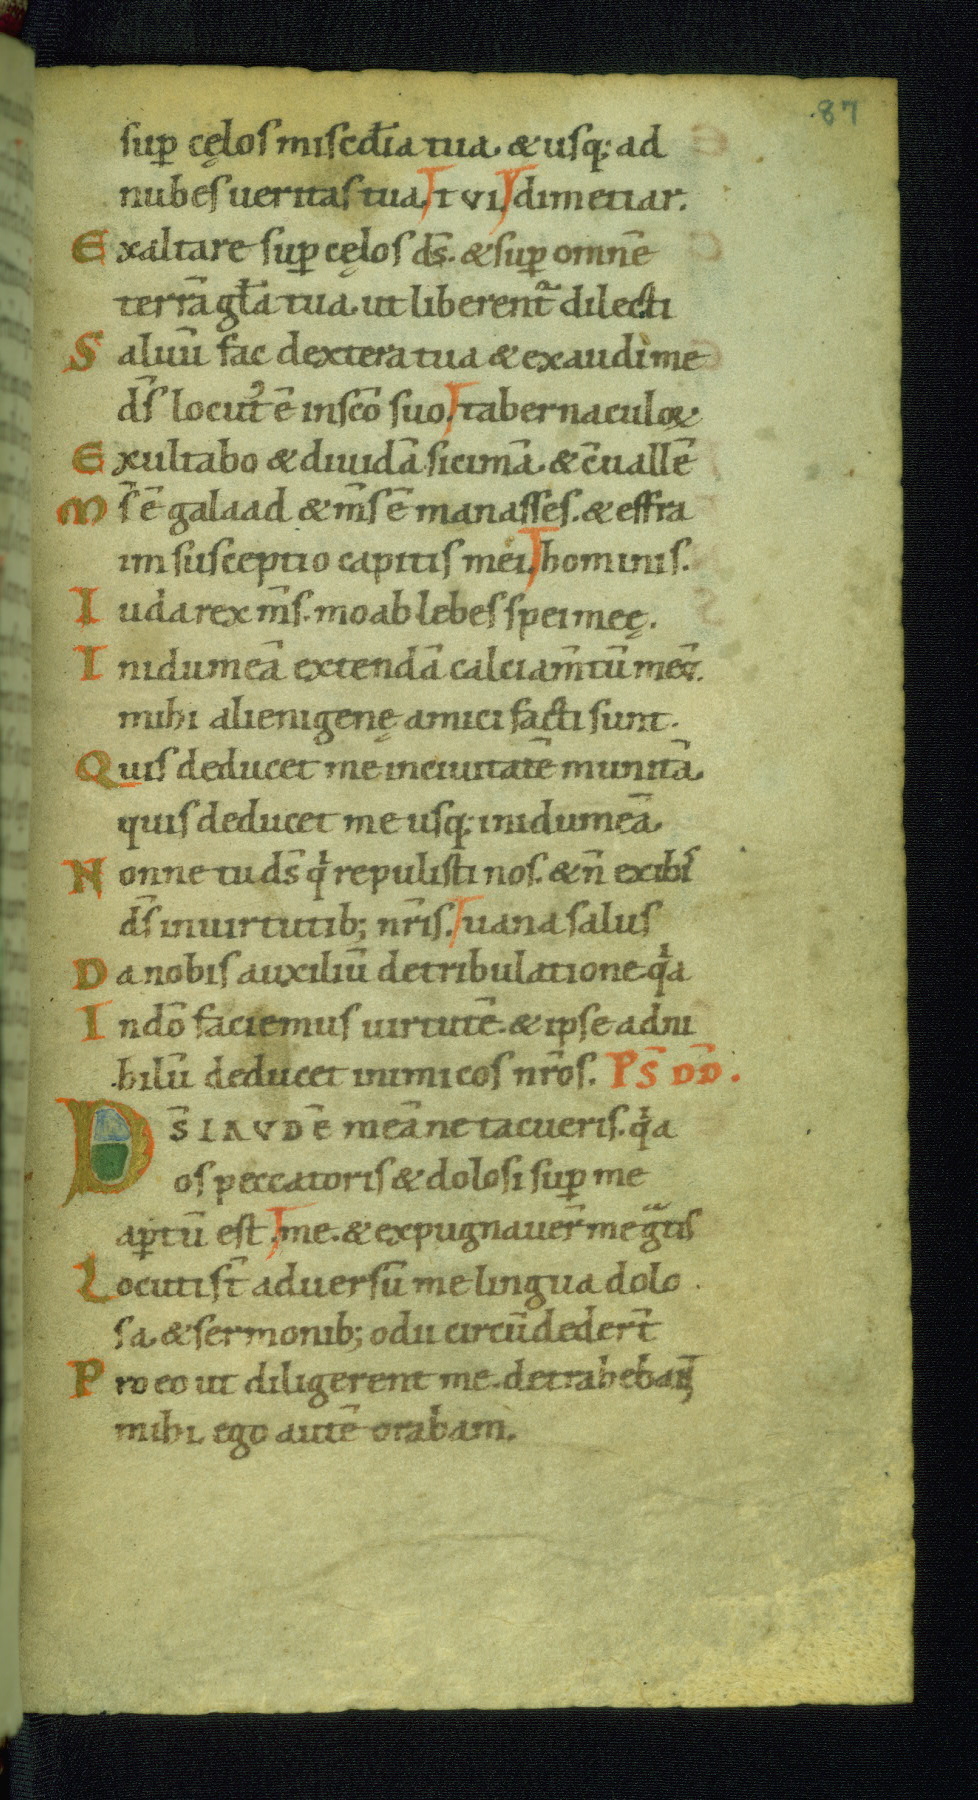 87
sup̄ cęlos misc̄dia tua. & usq; ad
nubes ueritas tua. t vi. dimetiar.
Exaltare sup̄ cęlos d̄s. & sup̄ omnē
terrā gl̄a tua. ut liberent̄ dilecti
Saluū fac dextera tua & exaudi me
d̄s locut' ē in sc̄o suo. tabernaculoꝝ
Exultabo & diuidā sicimā. & c̄uallē
M̄s ē galaad & m̄s ē manasses. & effra
im susceptio capitis mei. hominis.
Iuda rex m̄s. moab lebes spei meę.
In idumeā extendā calciam̄tū meū.
mihi alienigenę amici facti sunt.
Quis deducet me inciuitatē munitā.
quis deducet me usq; in idumeā
Nonne tu d̄s q̇ repulisti nos. & n̄ exibis
d̄s in uirtutib; nr̄is. uana salus
Da nobis auxiliū de tribulatione. q̇a
In dō faciemus uirtutē. & ipse adni
hilū deducet inimicos nr̄os. PS̄ DD̄.
DS̄ LAVDĒ meā ne tacueris. q̇a
os peccatoris & dolosi sup̄ me
ap̄tū est. me. & expugnauer̄ me g̃tis
Locuti st̄ aduersū me lingua dolo
sa. & sermonib; odii circūdedert̄
Pro eo ut diligerent me. detrahebant
mihi. ego autē orabam.